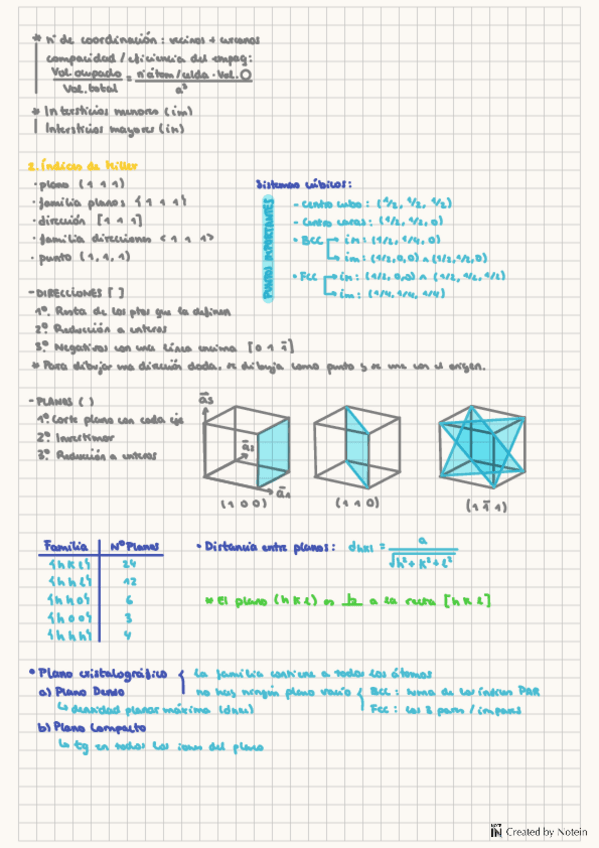 * nº de coordinación: vecinos + cercanos
compacidad / eficiencia del empaq:
Vol. ocupado / Vol. total = nº átom/celda · Vol. O / a³
* Intersticios menores (im)
Intersticios mayores (iM)
2. Índices de Miller
· plano (1 1 1)
· familia planos {1 1 1}
· dirección [1 1 1]
· familia direcciones <1 1 1>
· punto (1, 1, 1)
Sistemas cúbicos:
PUNTOS IMPORTANTES
- centro cubo: (1/2, 1/2, 1/2)
- centro caras: (1/2, 1/2, 0)
• BCC im: (1/2, 1/4, 0)
im: (1/2, 0, 0) ∧ (1/2, 1/2, 0)
• FCC im: (1/2, 0, 0) ∧ (1/2, 1/2, 1/2)
im: (1/4, 1/4, 1/4)
- DIRECCIONES [ ]
1º. Resta de los ptos que la definen
2º. Reducción a enteros
3º. Negativos con una línea encima [0 1 1̄]
* Para dibujar una dirección dada, se dibuja como punto y se une con el origen.
- PLANOS ( )
1º. Corte plano con cada eje
2º. Inverstimos
3º. Reducción a enteros
a̅3
a̅2
a̅1
(1 0 0)
(1 1 0)
(1 1̄ 1)
Familia Nº Planos
{h k l} 24
{h h l} 12
{h h 0} 6
{h 0 0} 3
{h h h} 4
• Distancia entre planos: dhkl = a / √h² + k² + l²
* El plano (h k l) es ⊥ a la recta [h k l]
• Plano cristalográfico { La familia contiene a todos los átomos
no hay ningún plano vacío { BCC: suma de los índices PAR
FCC: los 3 pares / impares
a) Plano Denso
↳ densidad planar máxima (dhkl)
b) Plano Compacto
↳ tg en todos los iones del plano
NOTE IN Created by Notein